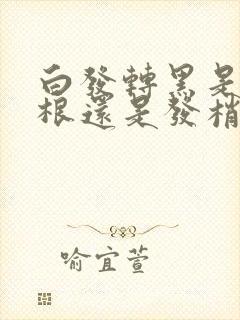 白發轉黑是
根還是發梢
喻宜萱